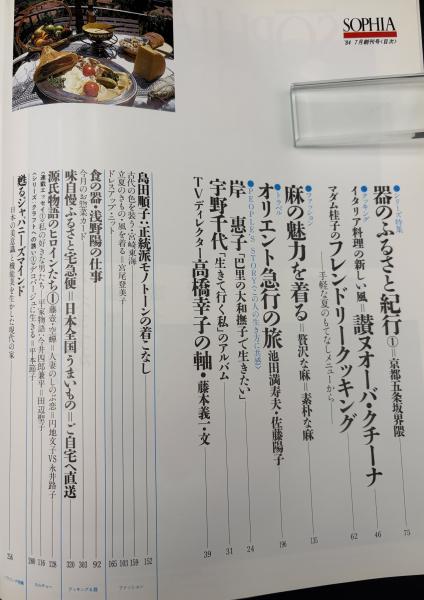 SOPHIA
'84 7月創刊号〈目次〉
●シリーズ特集
器のふるさと紀行①＝京都五条坂界隈
75
●クッキング
イタリア料理の新しい風＝讃ヌオーバ・クチーナ
46
マダム桂子のフレンドリークッキング
――手軽な夏のもてなしメニューから――
62
●ファッション
麻の魅力を着る＝贅沢な麻＝素朴な麻
135
●トラベル
オリエント急行の旅 池田満寿夫・佐藤陽子
196
●PEOPLE'S STORY〈この人の生き方に共感〉
岸 惠子「巴里の大和撫子で生きたい」
24
宇野千代「生きて行く私」のアルバム
31
TVディレクター高橋幸子の軸・藤本義一・文
39
島田順子：正統派モノトーンの着こなし
152
古代の色を装う・宮崎東海
159
立夏のきもの・風を着る＝宮尾登美子
103
ドレスアップ・ニット
165
ファッション
食の器・浅野陽の仕事
92
今月のお惣菜カード
303
味自慢ふるさと宅急便＝日本全国うまいもの＝ご自宅へ直送
320
クッキング&器
源氏物語のヒロインたち①藤壺・空蝉＝人妻のしのぶ恋＝円地文子VS永井路子
128
〈連載エッセイ〉①私の好きな男たち・平家物語・今井四郎兼平＝田辺聖子
116
〈シリーズ クラフトへの誘い〉①デコパージュに生きる＝平本節子
200
カルチャー
甦るジャパニーズマインド
日本の美意識と機能美を生かした現代の家
256